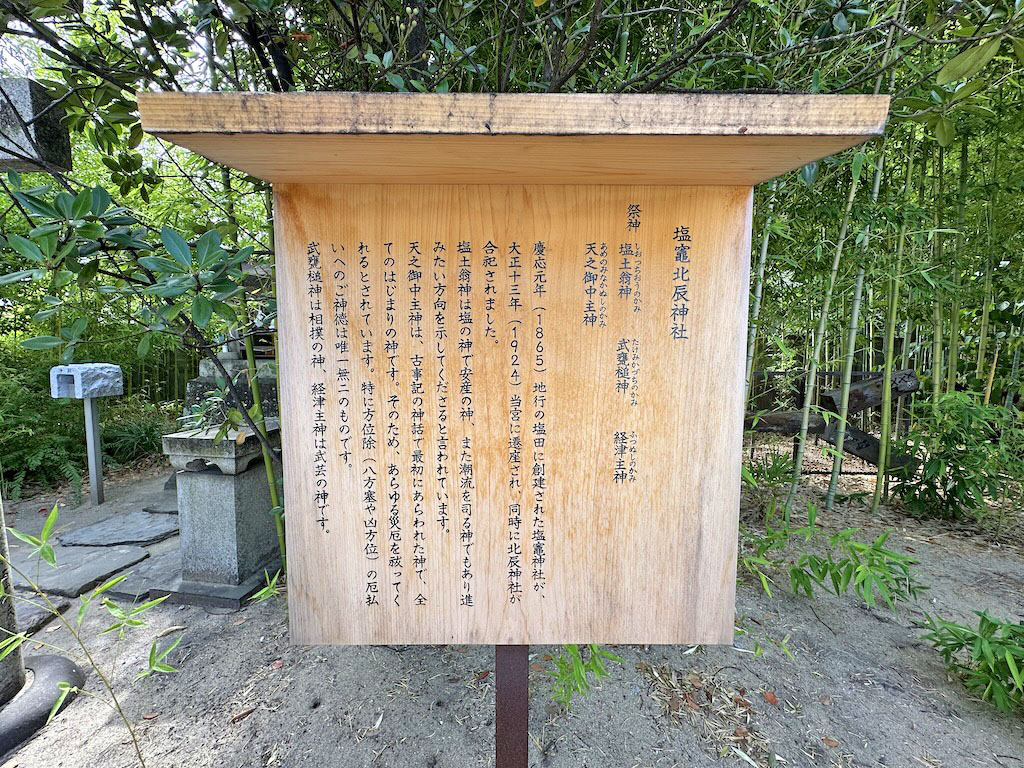 塩竈北辰神社
祭神 塩土翁神 武甕槌神 経津主神
しおつちおうのかみ たけみかづちのかみ ふつぬしのかみ
天之御中主神
あめのみなかぬしのかみ
慶応元年（1865）地行の塩田に創建された塩竈神社が、
大正十三年（1924）当宮に遷座され、同時に北辰神社が
合祀されました。
塩土翁神は塩の神で安産の神、また潮流を司る神でもあり進
みたい方向を示してくださると言われています。
天之御中主神は、古事記の神話で最初にあらわれた神で、全
てのはじまりの神です。そのため、あらゆる災厄を祓ってく
れるとされています。特に方位除（八方塞や凶方位）の厄払
いへのご神徳は唯一無二のものです。
武甕槌神は相撲の神、経津主神は武芸の神です。